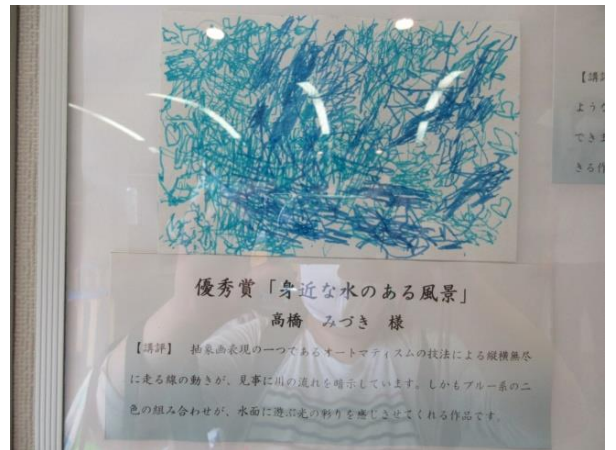 優秀賞「身近な水のある風景」
高橋　みづき　様
【講評】　抽象画表現の一つであるオートマティスムの技法による縦横無尽
に走る線の動きが、見事に川の流れを暗示しています。しかもブルー系の二
色の組み合わせが、水面に遊ぶ光の彩りを感じさせてくれる作品です。
【講
ような
できま
きる作